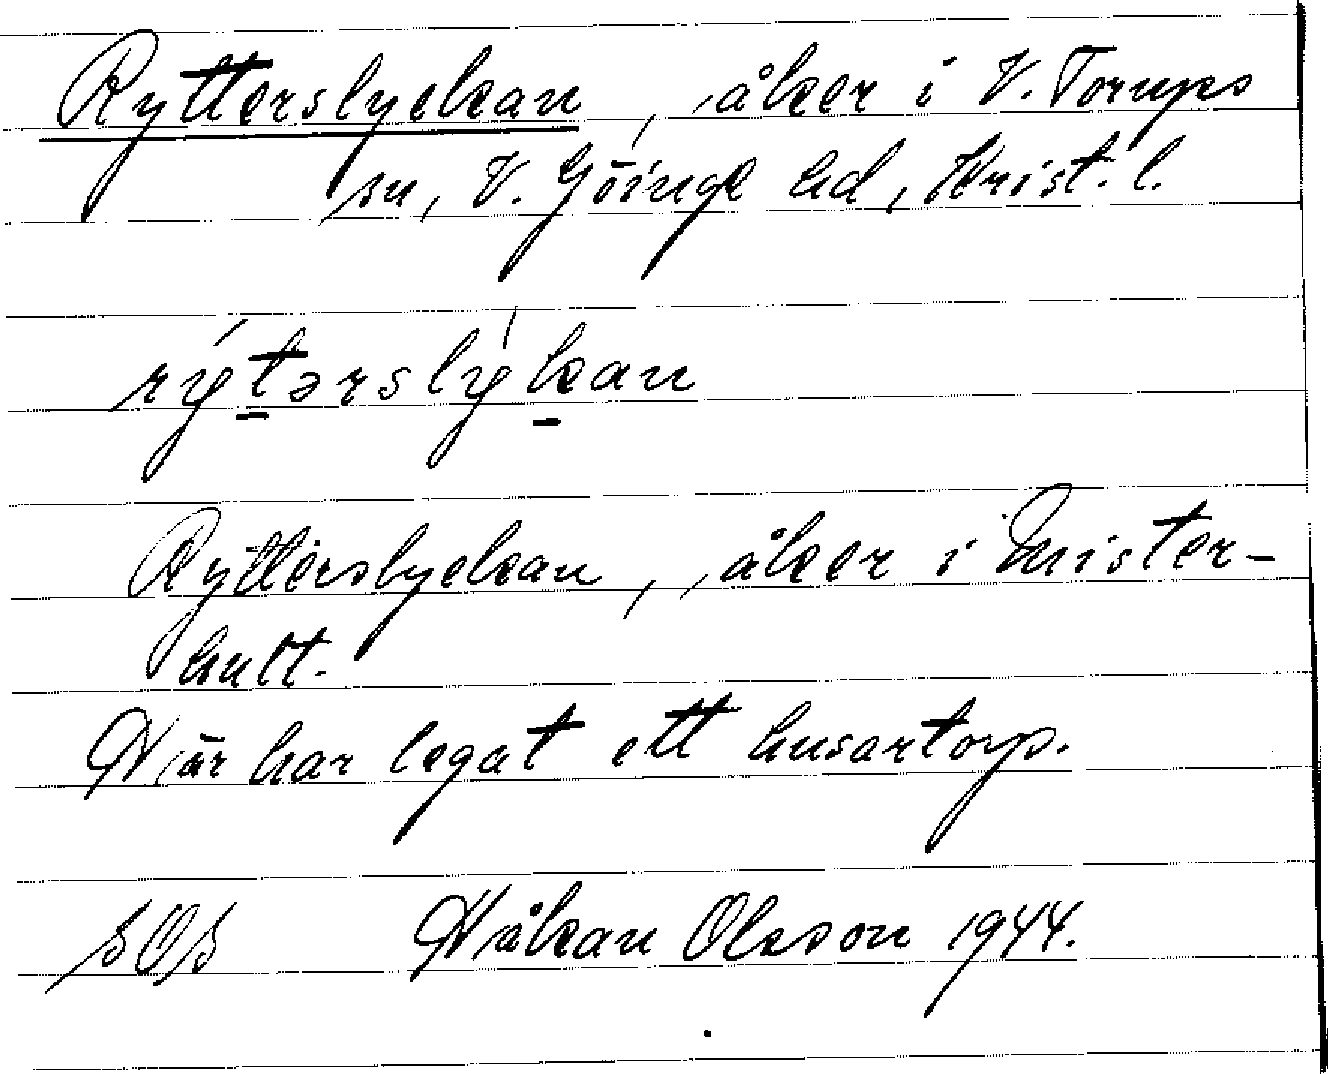 Rytterslyckan, åker i V. Torups
sn, V. Göinge hd, Krist. l.
rýtərslýkan
Rytterslyckan, åker i Mister-
hult.
Här har legat ett husartorp.
SOS Håkan Olsson 1944.